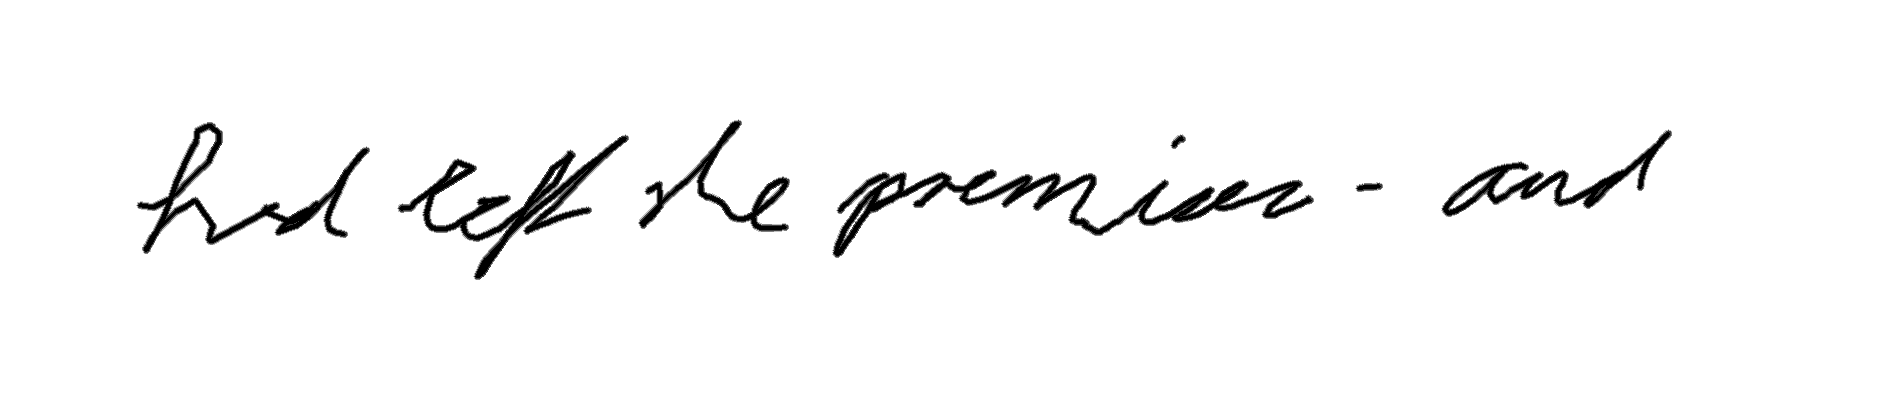 had left the premises - and